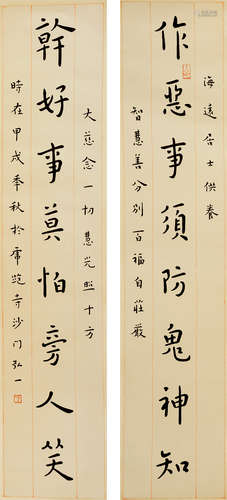 海遠居士供養
作惡事須防鬼神知
智慧善分別百福自莊嚴
大慈念一切慧光照十方
幹好事莫怕旁人笑
時在甲戌季秋於虎跑寺沙門弘一